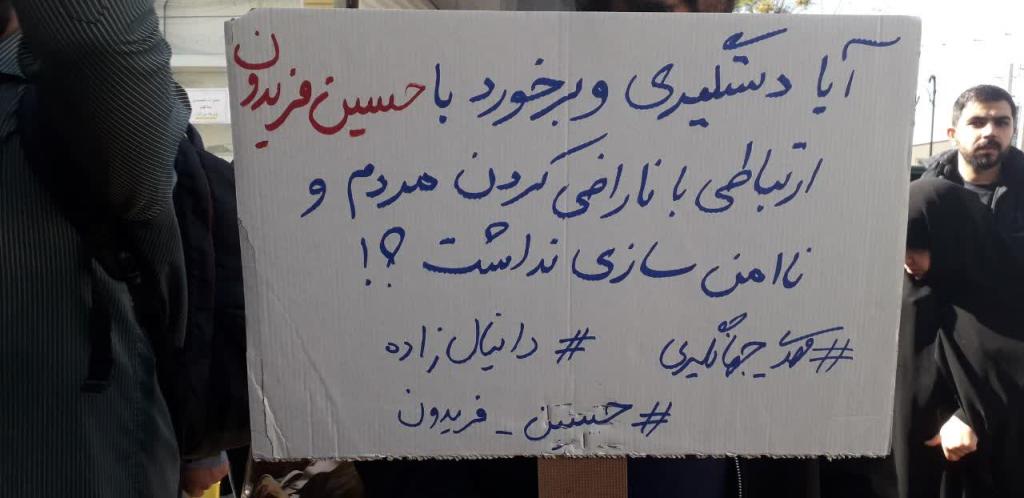 آیا دستگیری و برخورد با حسین فریدون
ارتباطی با ناراضی کردن مردم و
ناامن سازی نداشت ؟!
#مهدی_جهانگیری # دانیال زاده
#حسین_فریدون